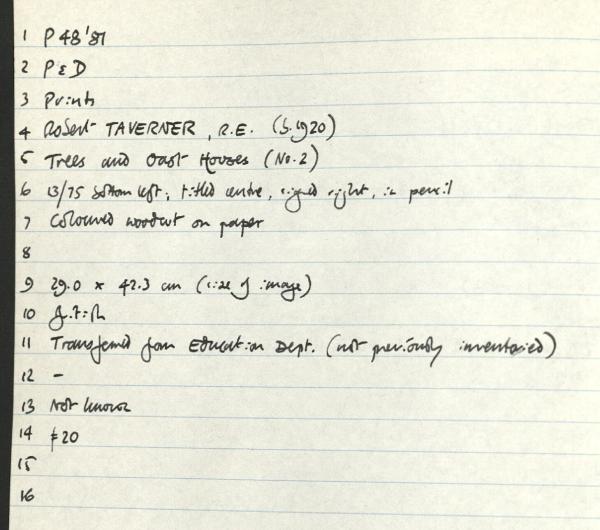 1 P48'81
2 P & D
3 Prints
4 Robert TAVERNER, R.E. (b.1920)
5 Trees and Oast Houses (No.2)
6 13/75 bottom left; titled centre, signed right, in pencil
7 Coloured woodcut on paper
8
9 29.0 x 42.3 cm (size of image)
10 British
11 Transferred from Education Dept. (not previously inventoried)
12 -
13 Not known
14 £20
15
16